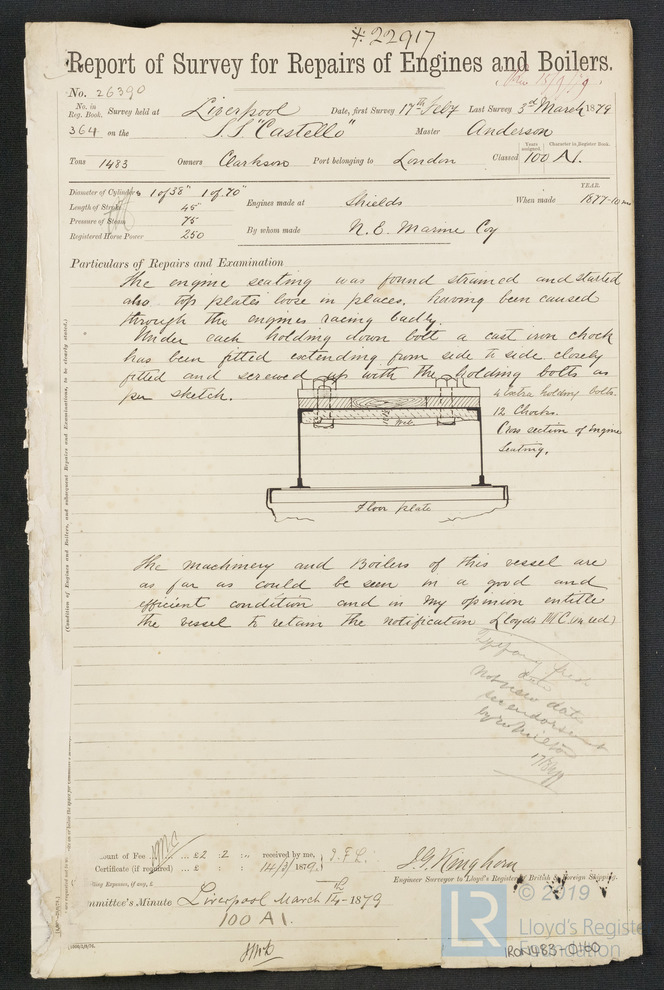 # 22917
Report of Survey for Repairs of Engines and Boilers.
No. 26390
No. in Reg. Book. Survey held at Liverpool Date, first Survey 17th Feby Last Survey 3rd March 1879
364 on the S.S "Castello" Master Anderson
Tons 1483 Owners Clarkson Port belonging to London Years assigned. Character in Register Book. Classed 100 A1.
Diameter of Cylinders 1 of 38" 1 of 70"
Length of Stroke 45"
Pressure of Steam 75
Registered Horse Power 250
Engines made at Shields When made YEAR. 1877-10
By whom made N. E. Marine Coy
Particulars of Repairs and Examination
The engine seating was found strained and started
also top plates loose in places, having been caused
through the engines racing badly.
Under each holding down bolt a cast iron chock
has been fitted extending from side to side closely
fitted and screwed up with the holding bolts as
per sketch.
4 Extra holding bolts.
12 Chocks.
Cross section of Engine
Seating.
Floor plate
(Condition of Engines and Boilers, and subsequent Repairs and Examinations, to be clearly stated.)
The machinery and Boilers of this vessel are
as far as could be seen in a good and
efficient condition and in my opinion entitle
the vessel to retain the notification Lloyds M.C. (in red)
date
Not new date
see endorsement
by
ount of Fee ... £2 : 2 : received by me,
Certificate (if required) ... £ : : 14/3/1879
lling Expenses, if any, £
J. G. Kinghorn
Engineer Surveyor to Lloyd's Register of British & Foreign Shipping.
mmittee's Minute Liverpool March 14th 1879
100 A1.
© 2019
LR
Lloyd's Register
Foundation
IRON483-0160